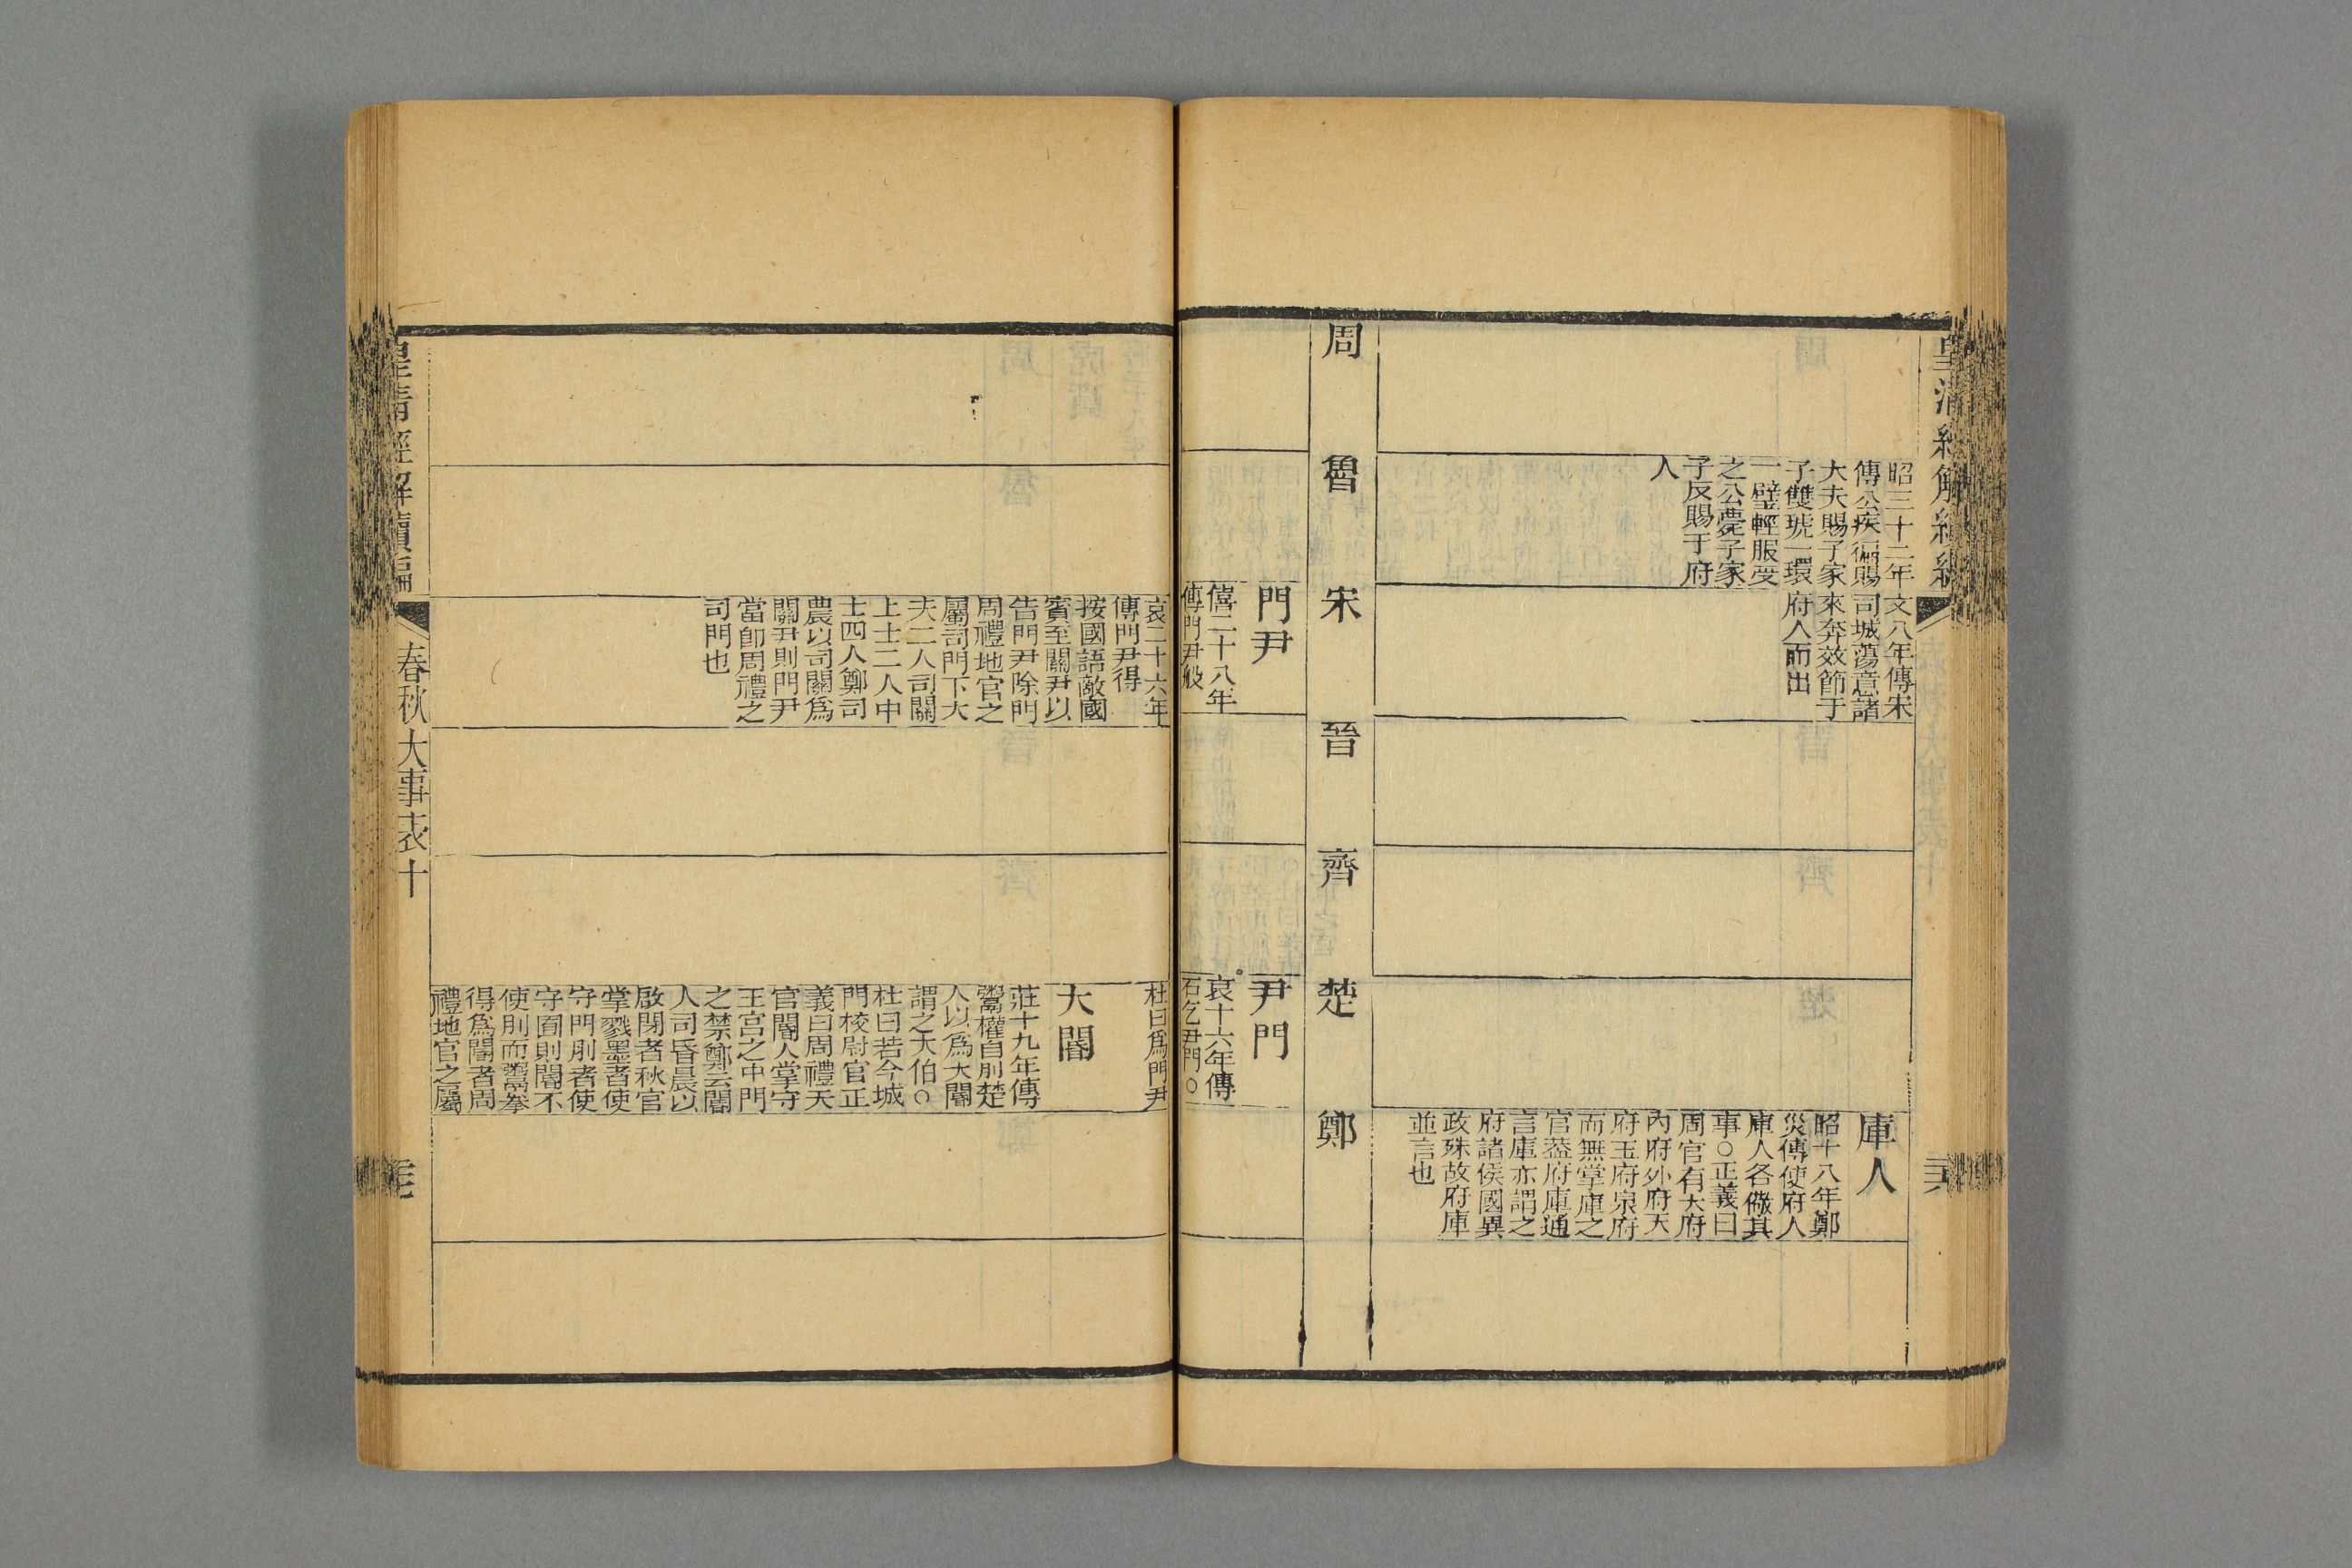 昭三十二年
傳公疾徧賜
大夫賜子家
子雙琥一環
一璧輕服受
之公薨子家
子反賜于府
人
文八年傳宋
司城蕩意諸
來奔效節于
府人而出
庫人
昭十八年鄭
災傳使府人
庫人各儆其
事○正義曰
周官有大府
內府外府天
府玉府泉府
而無掌庫之
官葢府庫通
言庫亦謂之
府諸侯國異
政殊故府庫
並言也
周
魯
宋
晉
齊
楚
鄭
門尹
僖二十八年
傳門尹般
尹門
哀十六年傳
石乞尹門○
哀二十六年
傳門尹得
按國語敵國
賓至關尹以
告門尹除門
周禮地官之
屬司門下大
夫二人司關
上士二人中
士四人鄭司
農以司關爲
關尹則門尹
當卽周禮之
司門也
杜曰爲門尹
大閽
莊十九年傳
鬻權自刖楚
人以爲大閽
謂之大伯○
杜曰若今城
門校尉官正
義曰周禮天
官閽人掌守
王宮之中門
之禁鄭云閽
人司昏晨以
啟閉者秋官
掌戮墨者使
守門刖者使
守囿則閽不
使刖而鬻拳
得爲閽者周
禮地官之屬
皇清經解續編
春秋大事表十